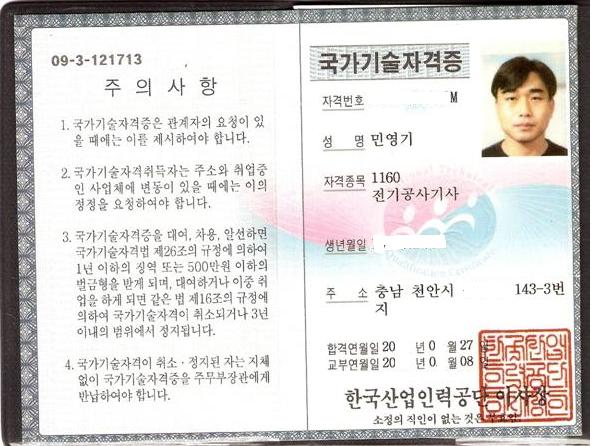 09-3-121713
주 의 사 항
1. 국가기술자격증은 관계자의 요청이 있
을 때에는 이를 제시하여야 합니다.
2. 국가기술자격취득자는 주소와 취업중
인 사업체에 변동이 있을 때에는 이의
정정을 요청하여야 합니다.
3. 국가기술자격증을 대여, 차용, 알선하면
국가기술자격법 제26조의 규정에 의하여
1년 이하의 징역 또는 500만원 이하의
벌금형을 받게 되며, 대여하거나 이중 취
업을 하게 되면 같은 법 제16조의 규정에
의하여 국가기술자격이 취소되거나 3년
이내의 범위에서 정지됩니다.
4. 국가기술자격이 취소·정지된 자는 지체
없이 국가기술자격증을 주무부장관에게
반납하여야 합니다.
국가기술자격증
자격번호 M
성 명 민영기
자격종목 1160
전기공사기사
생년월일
주 소 충남 천안시 143-3번
지
합격연월일 20 년 0 월 27
교부연월일 20 년 0 월 08 일
한국산업인력공단 이사장
소정의 직인이 없는 것은